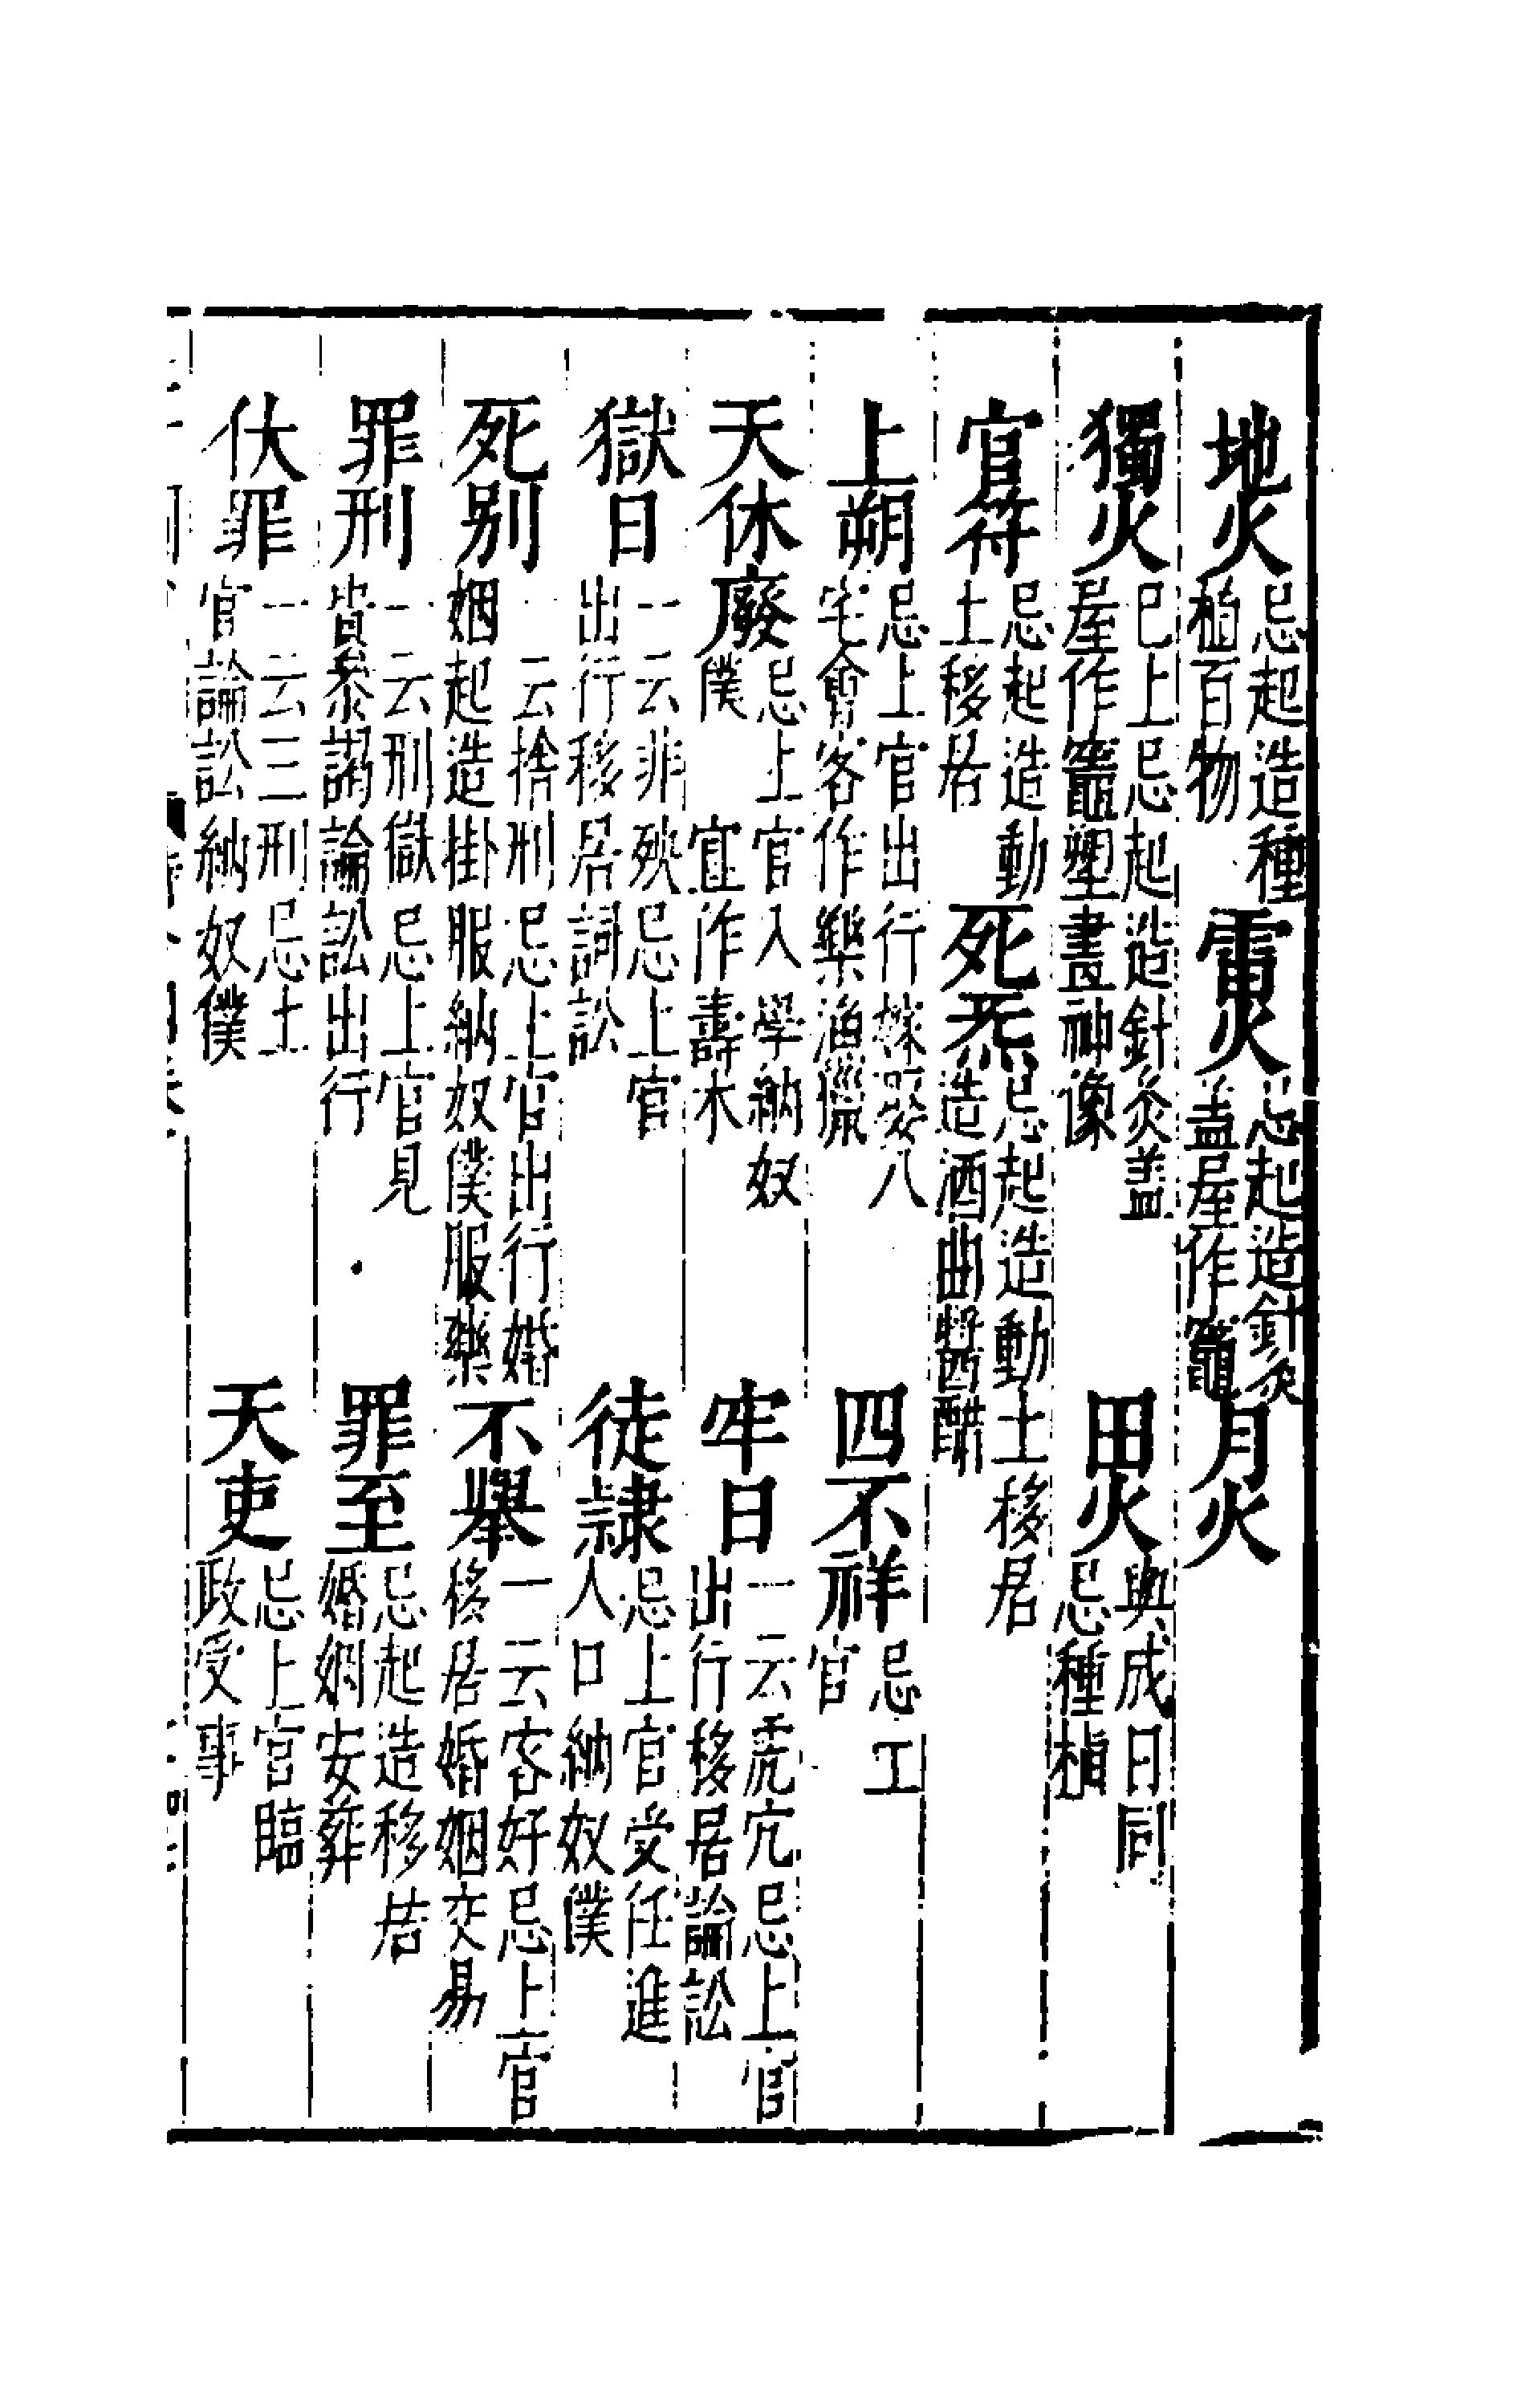 地火忌起造種植百物雷火忌起造針灸蓋屋作竈月火
獨火已上忌起造針灸蓋屋作竈塑畫神像田火與成日同忌種植
官符忌起造動土移居死炁忌起造動土移居造酒曲醬醋
上朔忌上官出行嫁娶入宅會客作樂漁獵四不祥忌上官
天休廢忌上官入學納奴僕宜作壽木牢日一云虎穴忌上官出行移居論訟
獄日一云非殃忌上官出行移居詞訟徒隷忌上官受任進人口納奴僕
死别一云捨刑忌上官出行婚姻起造掛服納奴僕服藥不舉一云客好忌上官移居婚姻交易
罪刑一云刑獄忌上官見貴叅謁論訟出行罪至忌起造移居婚姻安葬
伏罪一云三刑忌上官論訟納奴僕天吏忌上官臨政受事